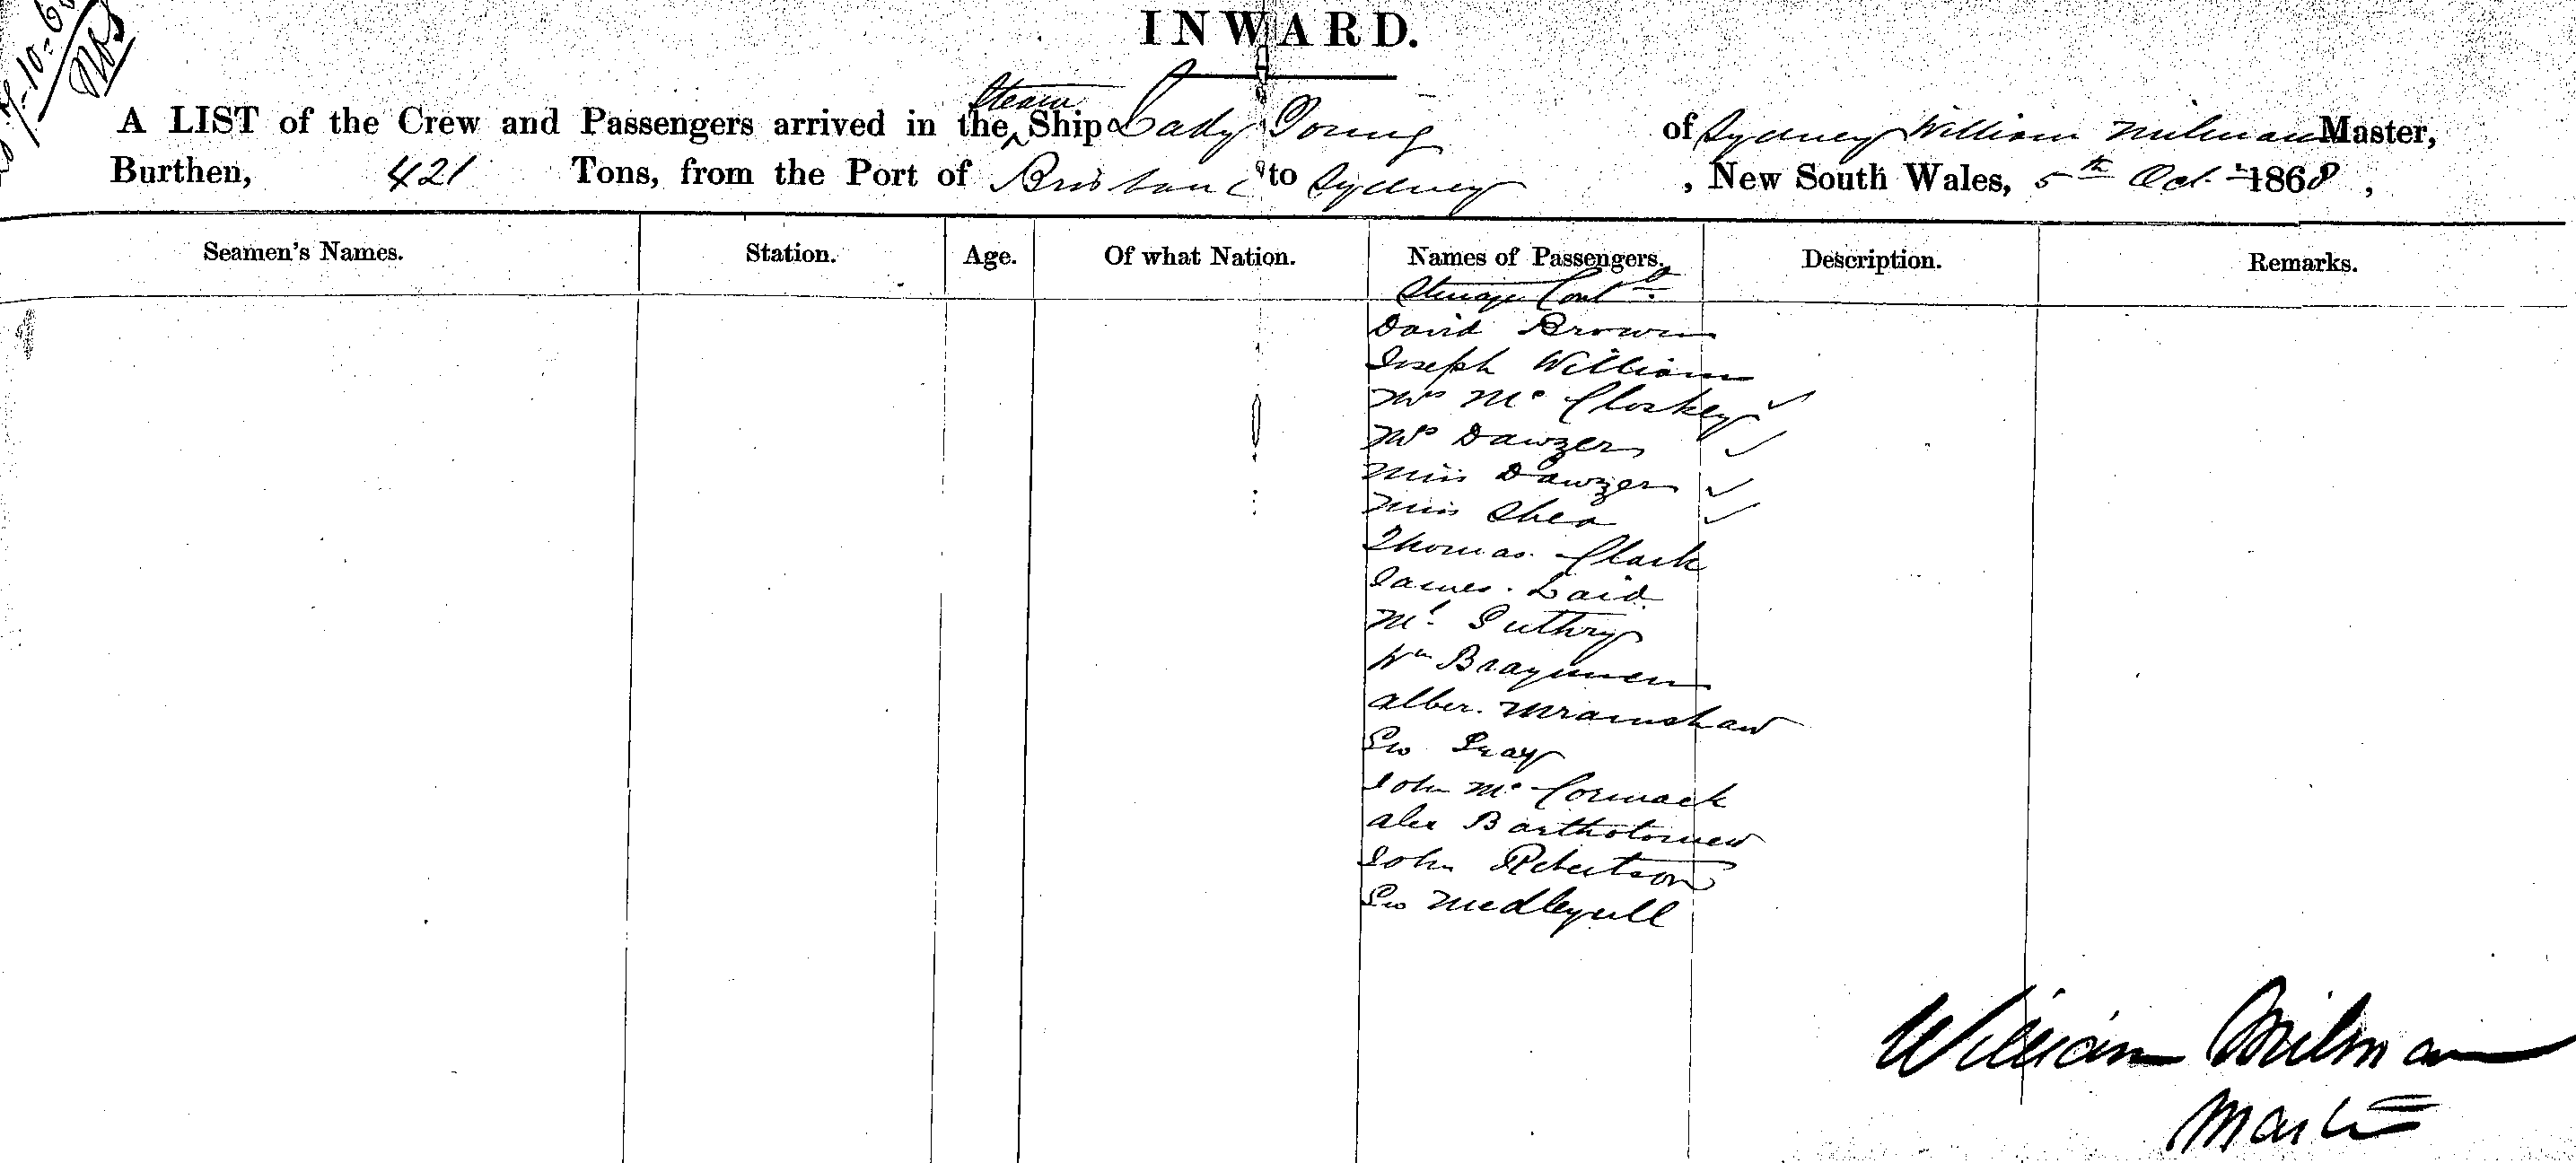 7-10-68
INWARD.
A LIST of the Crew and Passengers arrived in the Steam Ship Lady Young of Sydney William Milman Master,
Burthen, 421 Tons, from the Port of Brisbane to Sydney, New South Wales, 5th Oct. 1868,
Seamen's Names. Station. Age. Of what Nation. Names of Passengers. Description. Remarks.
Steerage Contd.
David Brown
Joseph William
Mrs Mc Closkey ✓
Mrs Dawzer ✓
Miss Dawzer ✓
Miss Shea ✓
Thomas Clark
James Laid
Mr. Guthry
Wm
Alber.
Geo Gray
John Mc Cormack
Alex Bartholomew
John Robertson
Geo
William Milman
Master